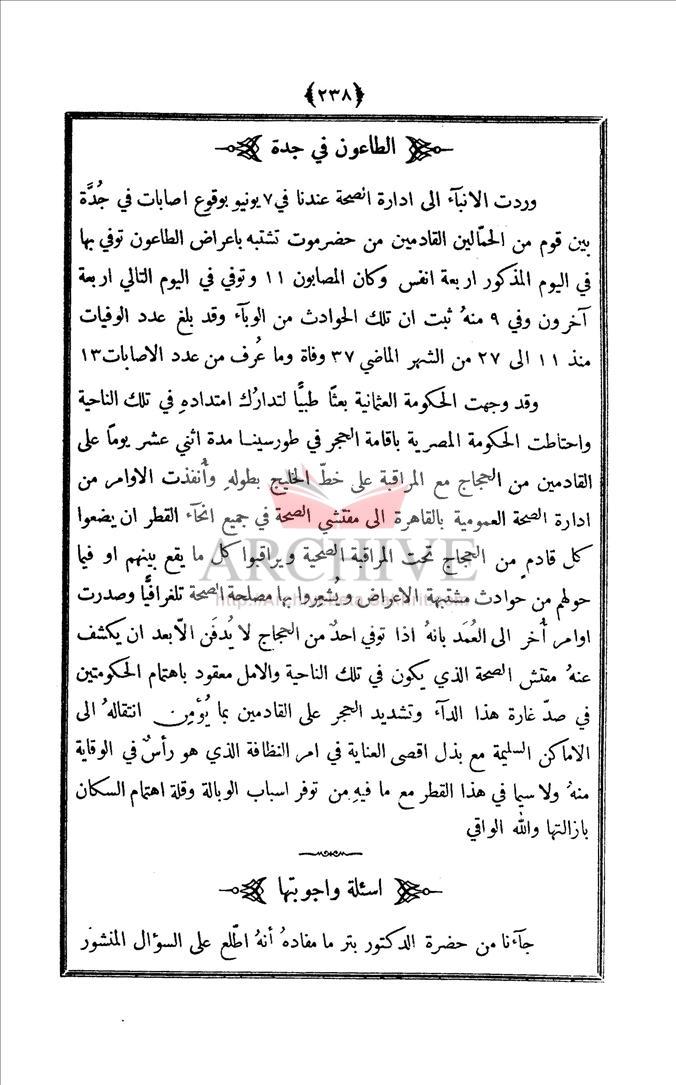 ﴿٢٣٨﴾
الطاعون في جدة
وردت الانبآء الى ادارة الصحة عندنا في ٧ يونيو بوقوع اصابات في جُدَّة
بين قوم من الحمّالين القادمين من حضرموت تشتبه باعراض الطاعون توفي بها
في اليوم المذكور اربعة انفس وكان المصابون ١١ وتوفي في اليوم التالي اربعة
آخرون وفي ٩ منهُ ثبت ان تلك الحوادث من الوبآء وقد بلغ عدد الوفيات
منذ ١١ الى ٢٧ من الشهر الماضي ٣٧ وفاة وما عُرف من عدد الاصابات ١٣
وقد وجهت الحكومة العثمانية بعثًا طبيًّا لتدارُك امتدادهِ في تلك الناحية
واحتاطت الحكومة المصرية باقامة الحجر في طورسينا مدة اثني عشر يومًا على
القادمين من الحجاج مع المراقبة على خطّ الخليج بطولهِ وأُنفذت الاوامر من
ادارة الصحة العمومية بالقاهرة الى مفتشي الصحة في جميع انحآء القطر ان يضعوا
كل قادمٍ من الحجاج تحت المراقبة الصحية ويراقبوا كل ما يقع بينهم او فيما
حولهم من حوادث مشتبهة الاعراض ويُشعِروا بها مصلحة الصحة تلغرافيًّا وصدرت
اوامر أُخر الى العُمَد بانهُ اذا توفي احدٌ من الحجاج لا يُدفَن الّا بعد ان يكشف
عنهُ مفتش الصحة الذي يكون في تلك الناحية والامل معقود باهتمام الحكومتين
في صدّ غارة هذا الدآء وتشديد الحجر على القادمين بما يُؤمِن انتقالهُ الى
الاماكن السليمة مع بذل اقصى العناية في امر النظافة الذي هو رأسٌ في الوقاية
منهُ ولاسيما في هذا القطر مع ما فيهِ من توفر اسباب الوبالة وقلة اهتمام السكان
بازالتها والله الواقي
اسئلة واجوبتها
جآءنا من حضرة الدكتور بتر ما مفادهُ أنهُ اطّلع على السؤال المنشور
ARCHIVE